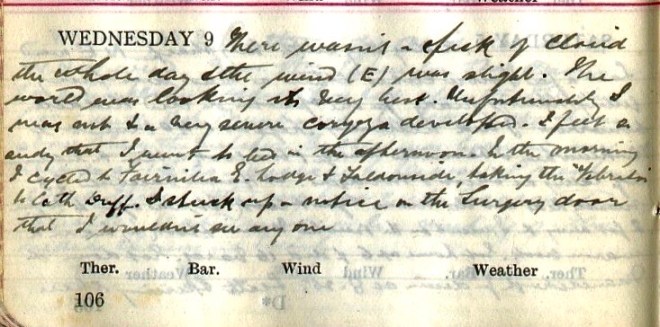 WEDNESDAY 9 There wasn't a speck of cloud
the whole day & the wind (E) was slight. The
world was looking its very best. Unfortunately I
was not & a very severe coryza developed. I felt so
that I went to bed in the afternoon. In the morning
I cycled to E. Lodge & taking the
to Cath Duff. I stuck up a notice on the Surgery door
that I wouldn't see any one
Ther. Bar. Wind Weather
106